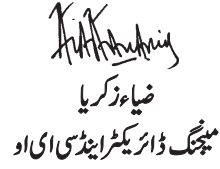 ضیاء زکریا
میجنگ ڈائریکٹر اینڈ سی ای او